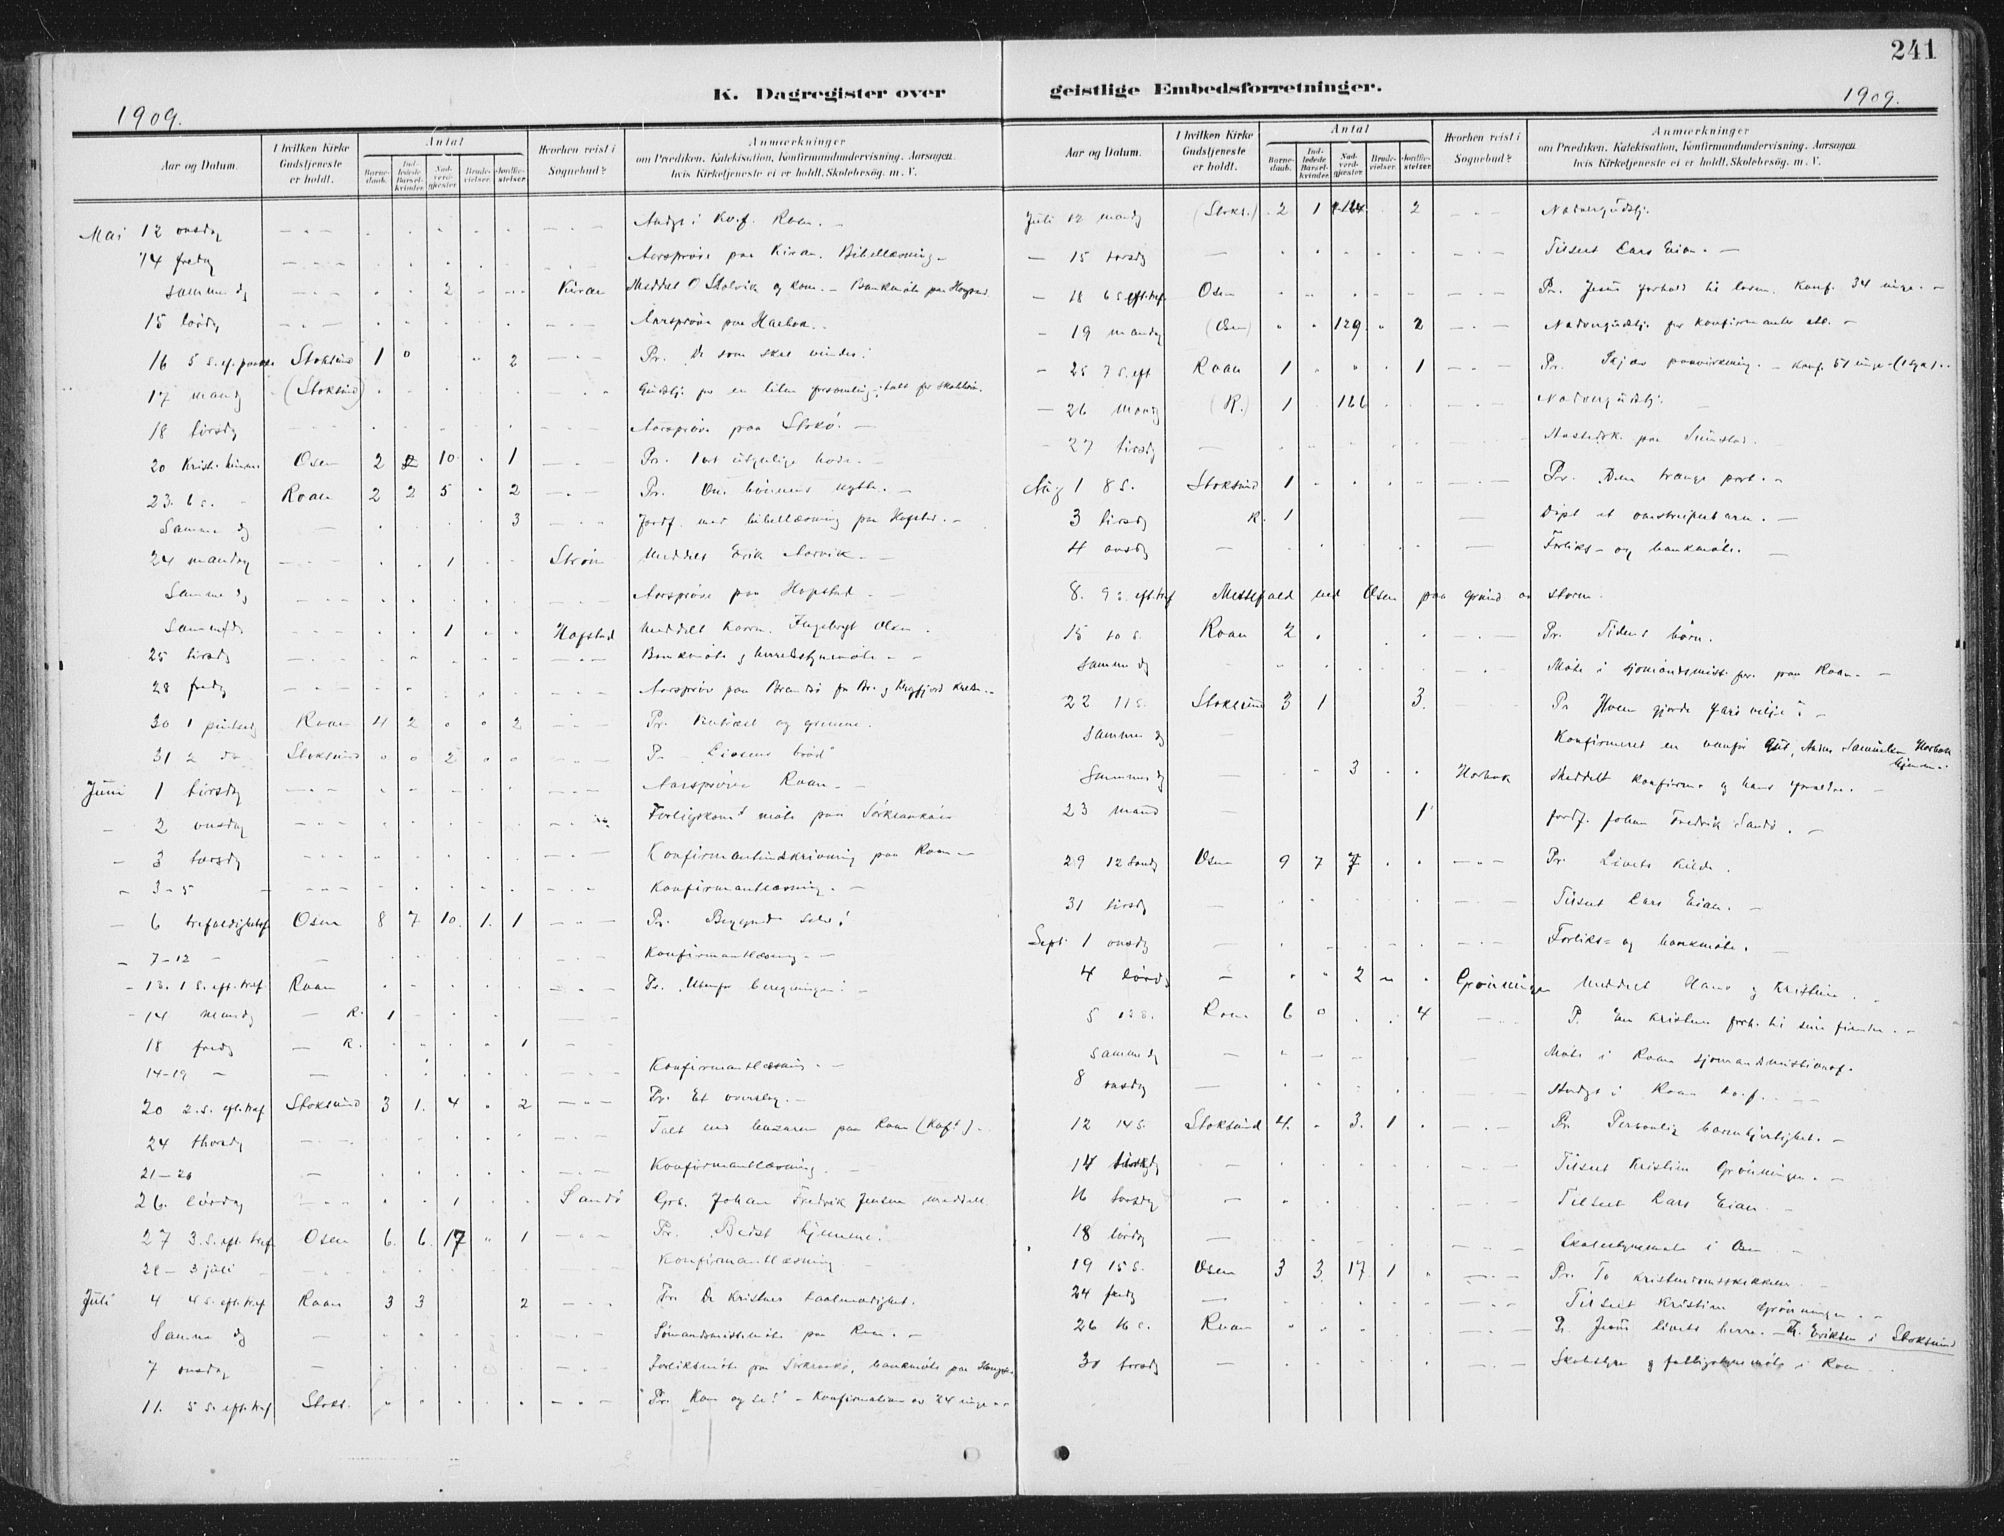 241
K. Dagregister over geistlige Embedsforretninger.
1909.
1909.
Aar og Datum. I hvilken Kirke Gudstjeneste er holdt. Antal Barnedaab. Indledede Barselkvinder. Nadverdgjæster. Brudevielser. Jordfæstelser. Hvorhen reist i Sognebud? Anmærkninger om Prædiken, Katekisation, Konfirmandundervisning, Aarsagen hvis Kirketjeneste ei er holdt, Skolebesøg, m. V.
Mai 12 onsdag Andgt i Roan. -
14 fredag Aarsprøve paa Kiran. Bibellæsning -
samme dg 2 Kiran Meddelt O Stolvik og kone. - Bankmøte paa
15 lørdg Aarsprøve paa Harbak.
16 5 S. ef. paaske Stoksund 1 0 2 Pr. De som skal vinde!
17 mandg (Stoksund) Gudstj. for en liten forsamling
18 tirsdg Aarsprøve paa Stokø. -
20 Kristi himm. Osen 2 2 10 1 Pr.
23. 6 s. Roan 2 2 5 2 Pr. Om bønnens nytte. -
Samme dg 3 Jordf. med bibellæsning paa Hofstad. -
24 mandag 1 Strøm Meddelt Erik Narvik. -
Samme dg Aarsprøve paa Hopstad. -
Samme dg 1 Hofstad Meddelt Karen Ingebrigt Olsen.
25 tirsdg Bankmøte g herredsstyremøte. -
28 fredg Aarsprøve paa Brandsø
30 1 pintsedg Roan 4 2 2 Pr.
31 2 do Stoksund 2 Pr. Livsens brød"
Juni 1 tirsdg Aarsprøve Roan. -
2 onsdag Forligskom. møte paa
3 torsdg Konfirmantindskrivning paa Roan -
3-5 Konfirmantlæsning. -
6 trefoldighetsf. Osen 8 7 10. 1. 1 Pr. Begynd selv!
7-12 Konfirmantlæsning. -
13. 1 S. eft. tref. Roan Pr. Utenfor
14 mandg R. 1
18 fredg R. 1
14-19 Konfirmantlæsning. -
20 2. S. eft. tref Stoksund 3 1. 4 2 Pr. Et overslag. -
24 thorsdg Talt ved basaren paa Roan
21-26 Konfirmantlæsning.
26. lørdag 1 Sandø Johan Fredrik Jensen meddelt
27 3. S. eft. tref. Osen 6. 6. 17 1 Pr. Bedst hjemme.
28-3 juli Konfirmantlæsning
Juli 4 4 S. eft. tref Roan 3 3 2 Pr. De kristnes taalmodighet.
Samme dg Sømandsmissionsmøte paa Roan. -
7 onsdag Forliksmøte paa bankmøte paa
11. 5 S. eft. tref Stoks. "Pr. Kom og se!" - Konfirmation av 24 unge -
Aar og Datum. I hvilken Kirke Gudstjeneste er holdt. Antal Barnedaab. Indledede Barselkvinder. Nadverdgjæster. Brudevielser. Jordfæstelser. Hvorhen reist i Sognebud? Anmærkninger om Prædiken, Katekisation, Konfirmandundervisning, Aarsagen hvis Kirketjeneste ei er holdt, Skolebesøg, m. V.
Juli 12 mandg (Stoks.) 2 1 164 2 Nadvergudstj.
15 torsdg Tilseet Lars Eian. -
18 6 S. eft. tref. Osen Pr. Jesu forhold til loven. Konf. 34 unge. -
19 mandg (Osen) 129 2 Nadvergudstj. for konfirmanter etc. -
25 7 S. eft Roan 1 1 Pr. paavirkning. - Konf. 51 unge
26 mandg (R.) 1 166 Nadvergudstj.
27 tirsdg paa Sumstad.
Aug 1 8 S. Stoksund 1 Pr. Den trange port. -
3 tirsdg R. 1 Døpt et omstreiferbarn. -
4 onsdg Forliks- og bankmøte. -
8. 9 s. eft. tref Messefald ved Osen paa grund av storm.
15 10 S. Roan 2 Pr. Tidens børn.
Samme dg Møte i sjømandsmis. for. paa Roan. -
22 11 S. Stoksund 3 1 3. Pr. Hvem gjorde fars vilje? -
Samme dg Konfirmeret en vanfør gut, Anders Samuelsen Harbak hjemme.
Samme dg 3 Harbak Meddelt konfirm. g hans forældre. -
23 mand 1 Jordf. Johan Fredrik Sandø. -
29 12 søndg Osen 9 7 7 Pr. Livets kilde.
31 tirsdg Tilseet Lars Eian. -
Sept. 1 onsdg Forliks- og bankmøte. -
4 lørdg 2 Grønningen Meddelt Hans g Kristine.
5 13 S. Roan 6 0 4 P. En kristens forh. til sine fiender. -
Samme dg Møte i Roan sjømandsmissionsf.
8 onsdg Andgt i Roan
12 14 S. Stoksund 4. 3. 1 Pr. Personlig barmhjertighet. -
14 tirsdg Tilseet Kristine Grønningen. -
16 torsdg Tilseet Lars Eian.
18 lørdg Skolestyremøte i Osen
19 15 S. Osen 3 3. 17 1 Pr. To kristendomsstykker.
24 fredg Tilseet Kristine Grønningen. -
26 16 S. Roan Pr. Jesus livets herre. - Eriksen i Stoksund
30 torsdg Skolestyre g fattigstyremøte i Roan